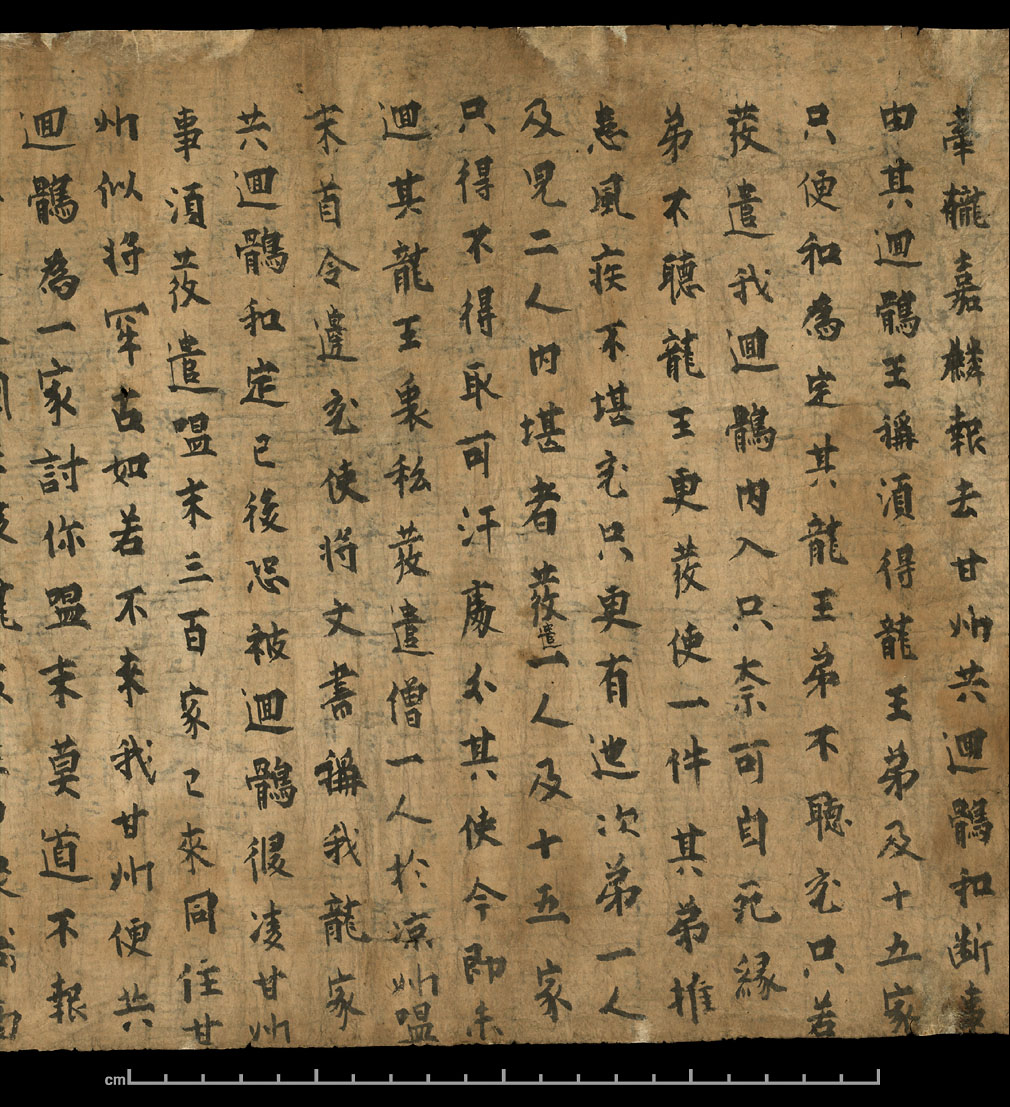 牽櫳嘉麟報去甘州共迴鶻和断事
由其迴鶻王稱湏得龍王弟及十五家
只便和為定其龍王弟不聽充只若
發遣我迴鶻内入只柰可自死緣
弟不聽龍王更發使一件其弟推
患風疾不堪充只更有迆次弟一人
及兒二人内堪者發遣一人及十五家
只得不得取可汗處分其使今即未
迴其龍王裏私發遣僧一人於凉州嗢
末首令邊充使将文書稱我龍家
共迴鶻和定已後恐被迴鶻侵凌甘州
事湏發遣嗢末三百家已來同住甘
州似将牢古如若不來我甘州便共
迴鶻為一家討你嗢末莫道不報